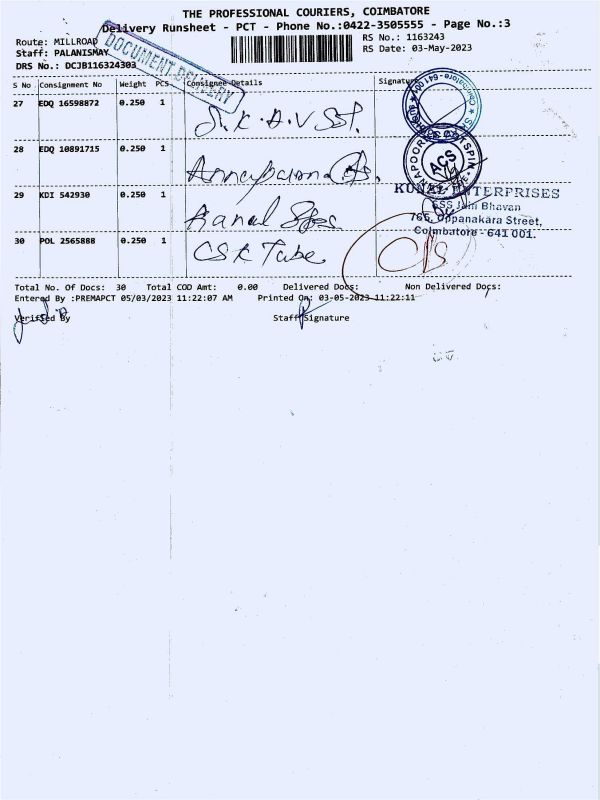 THE PROFESSIONAL COURIERS, COIMBATORE
Delivery Runsheet - PCT - Phone No.:0422-3505555 - Page No.:3
Route: MILLROAD
RS No.: 1163243
Staff: PALANISMAY
RS Date: 03-May-2023
DRS No.: DCJB116324303
DOCUMENT DELIVERY
S No Consignment No Weight PCS Consignee Details Signature
27 EDQ 16598872 0.250 1 S.K.A.V
28 EDQ 10891715 0.250 1
ACS
29 KDI 542930 0.250 1
KUNAL ENTERPRISES
SSS Jain Bhavan
766, Oppanakara Street,
Coimbatore - 641 001.
30 POL 2565888 0.250 1 CSK Tube
Total No. Of Docs: 30 Total COD Amt: 0.00 Delivered Docs: Non Delivered Docs:
Entered By :PREMAPCT 05/03/2023 11:22:07 AM Printed On: 03-05-2023 11:22:11
Verified By Staff Signature